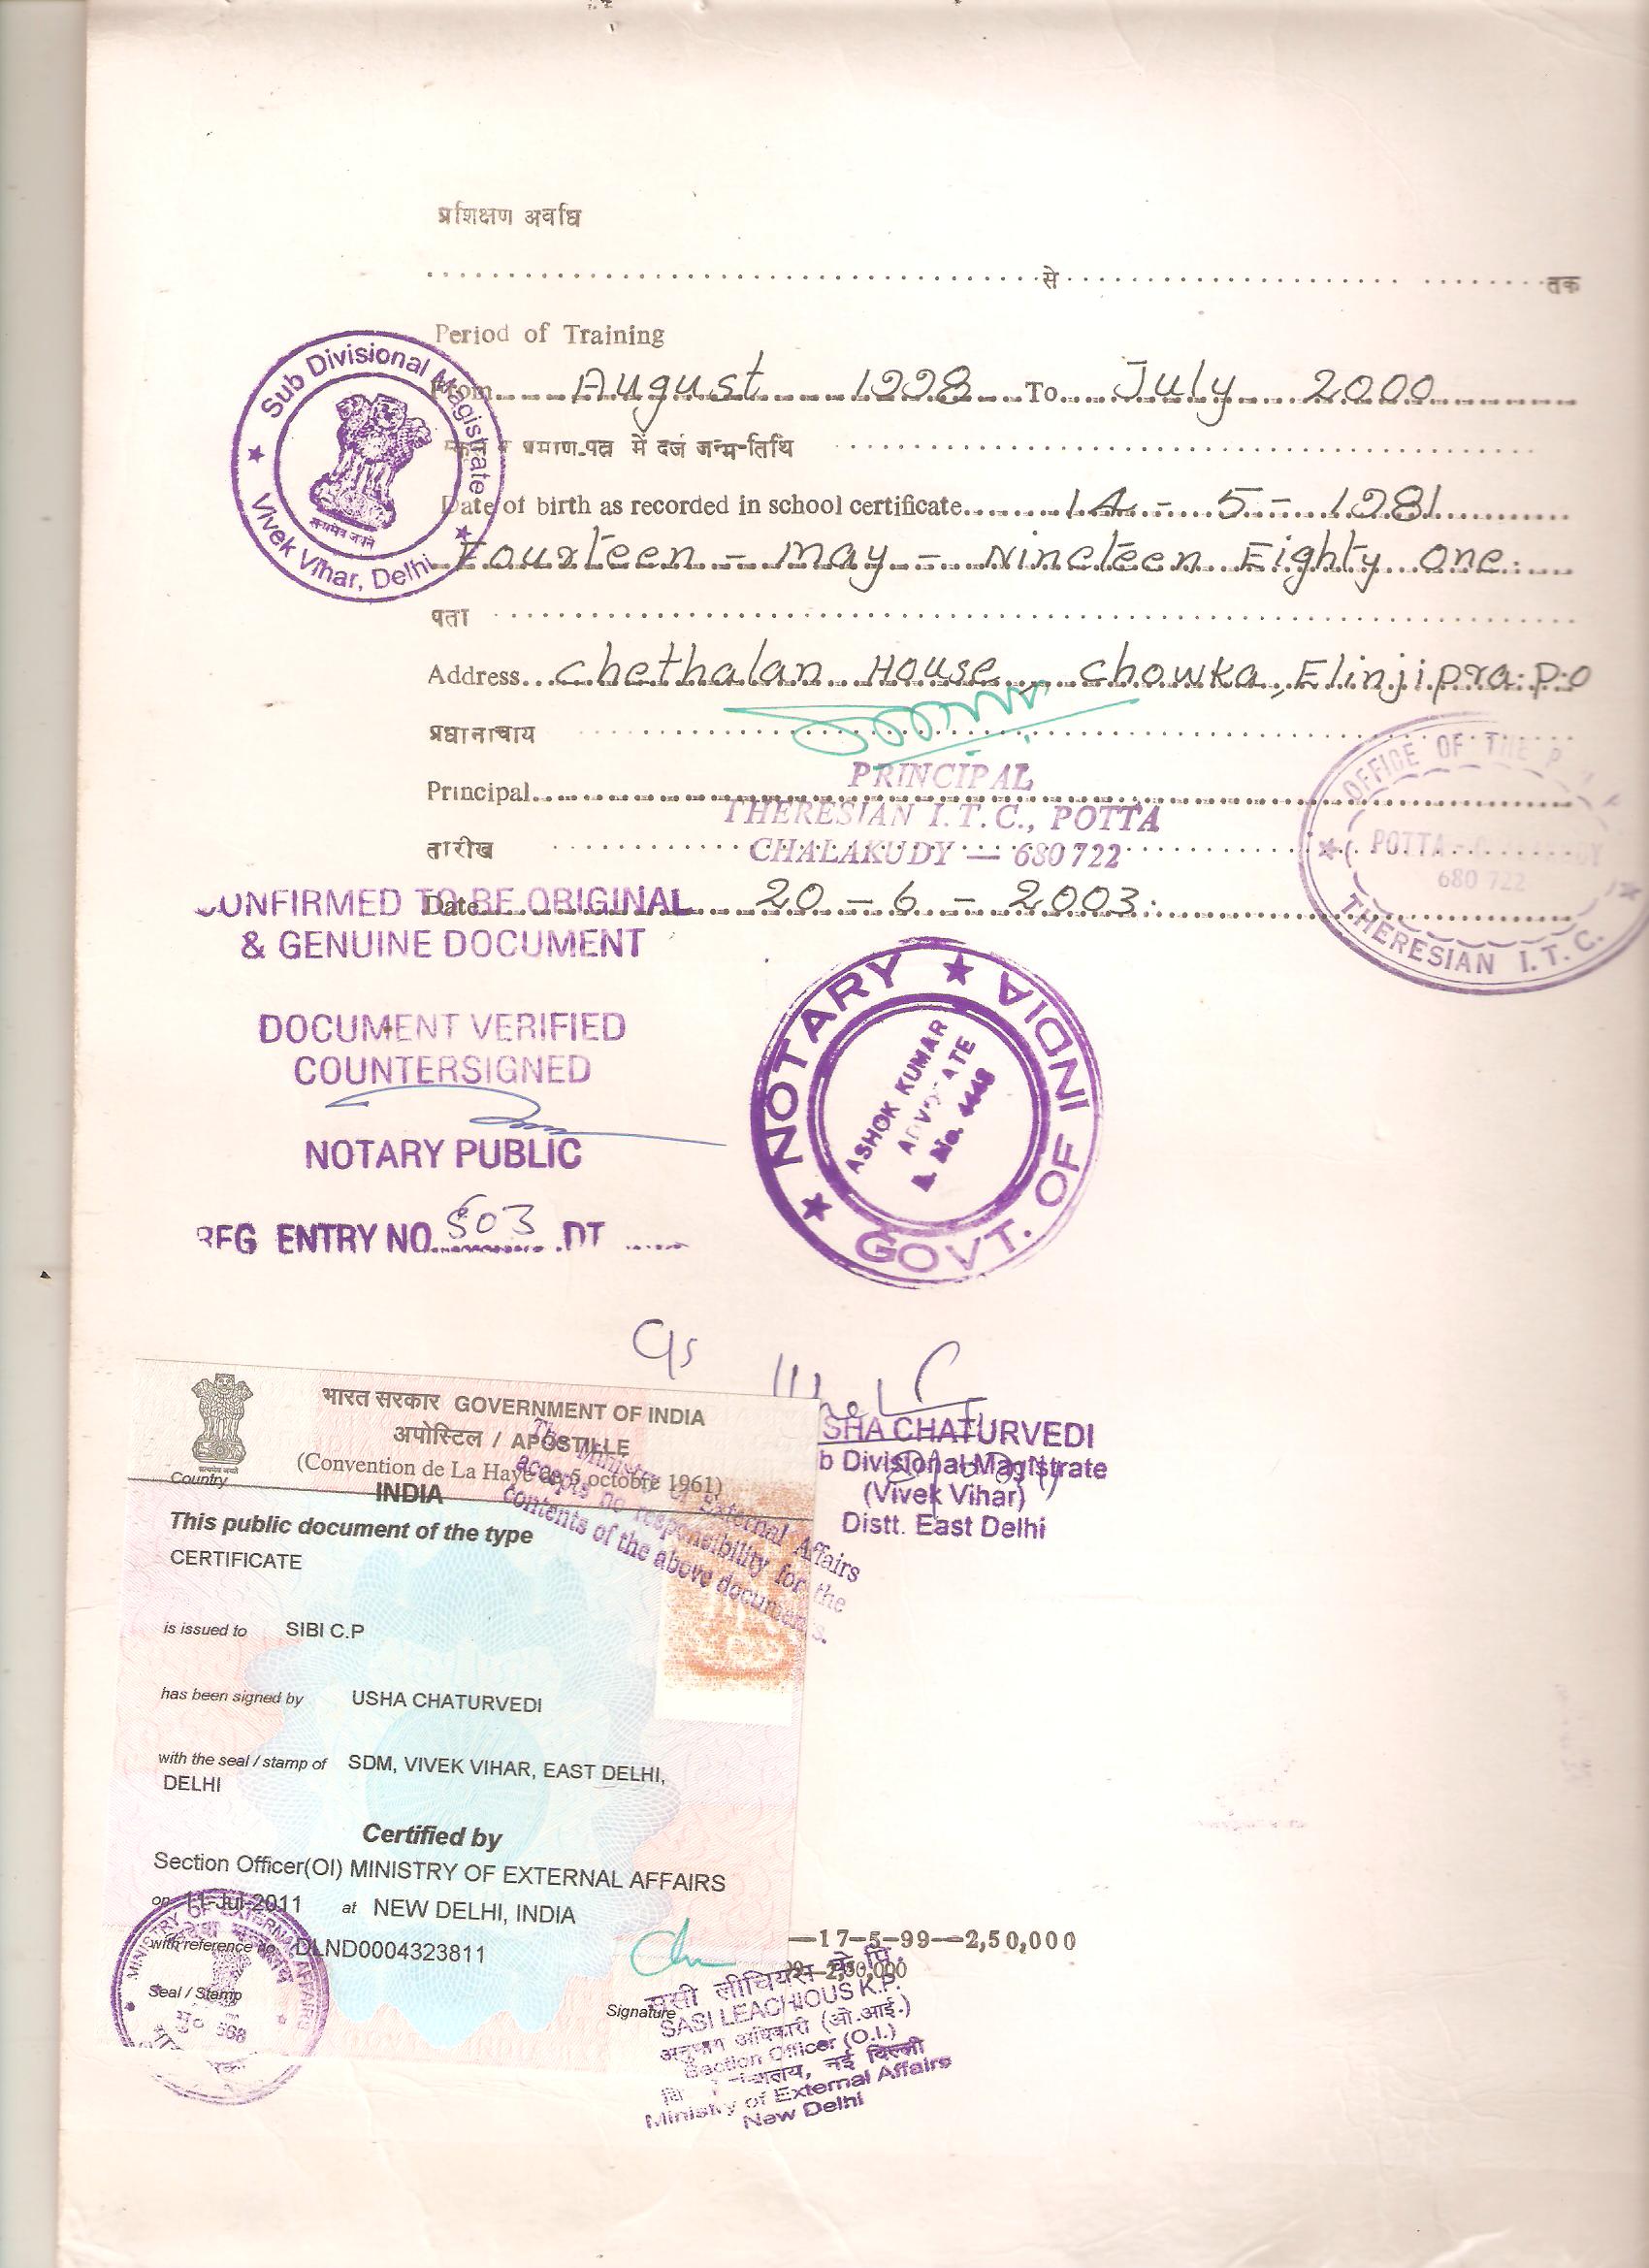 प्रशिक्षण अवधि
से तक
Period of Training
From August 1998 To July 2000
प्रमाण-पत्र में दर्ज जन्म-तिथि
Date of birth as recorded in school certificate 14 - 5 - 1981
Fourteen - may - Nineteen Eighty one.
पता
Address chethalan House, chowka, Elinjipra. p.o
प्रधानाचार्य
Principal
PRINCIPAL
THERESIAN I.T.C., POTTA
CHALAKUDY — 680 722
तारीख
Date 20 - 6 - 2003.
Sub Divisional Magistrate
सत्यमेव जयते
Vivek Vihar, Delhi
OFFICE OF THE
POTTA
680 722
THERESIAN I.T.C.
CONFIRMED TO BE ORIGINAL
& GENUINE DOCUMENT
DOCUMENT VERIFIED
COUNTERSIGNED
NOTARY PUBLIC
REG ENTRY NO. 503 DT
NOTARY
GOVT. OF INDIA
ASHOK KUMAR
ADVOCATE
No. 4448
SHA CHATURVEDI
b Divisional Magistrate
(Vivek Vihar)
Distt. East Delhi
भारत सरकार GOVERNMENT OF INDIA
अपोस्टिल / APOSTILLE
(Convention de La Haye de 5 octobre 1961)
Country INDIA
The Ministry of External Affairs
accepts no responsibility for the
contents of the above documents.
This public document of the type
CERTIFICATE
is issued to SIBI C.P
has been signed by USHA CHATURVEDI
with the seal / stamp of SDM, VIVEK VIHAR, EAST DELHI,
DELHI
Certified by
Section Officer(OI) MINISTRY OF EXTERNAL AFFAIRS
on 11-Jul-2011 at NEW DELHI, INDIA
with reference no. DLND0004323811
Seal / Stamp
Signature
MINISTRY OF EXTERNAL AFFAIRS
—17-5-99—2,50,000
SASI LEACHIOUS K.P.
अनुभाग अधिकारी (ओ.आई.)
Section Officer (O.I.)
नई दिल्ली
Ministry of External Affairs
New Delhi